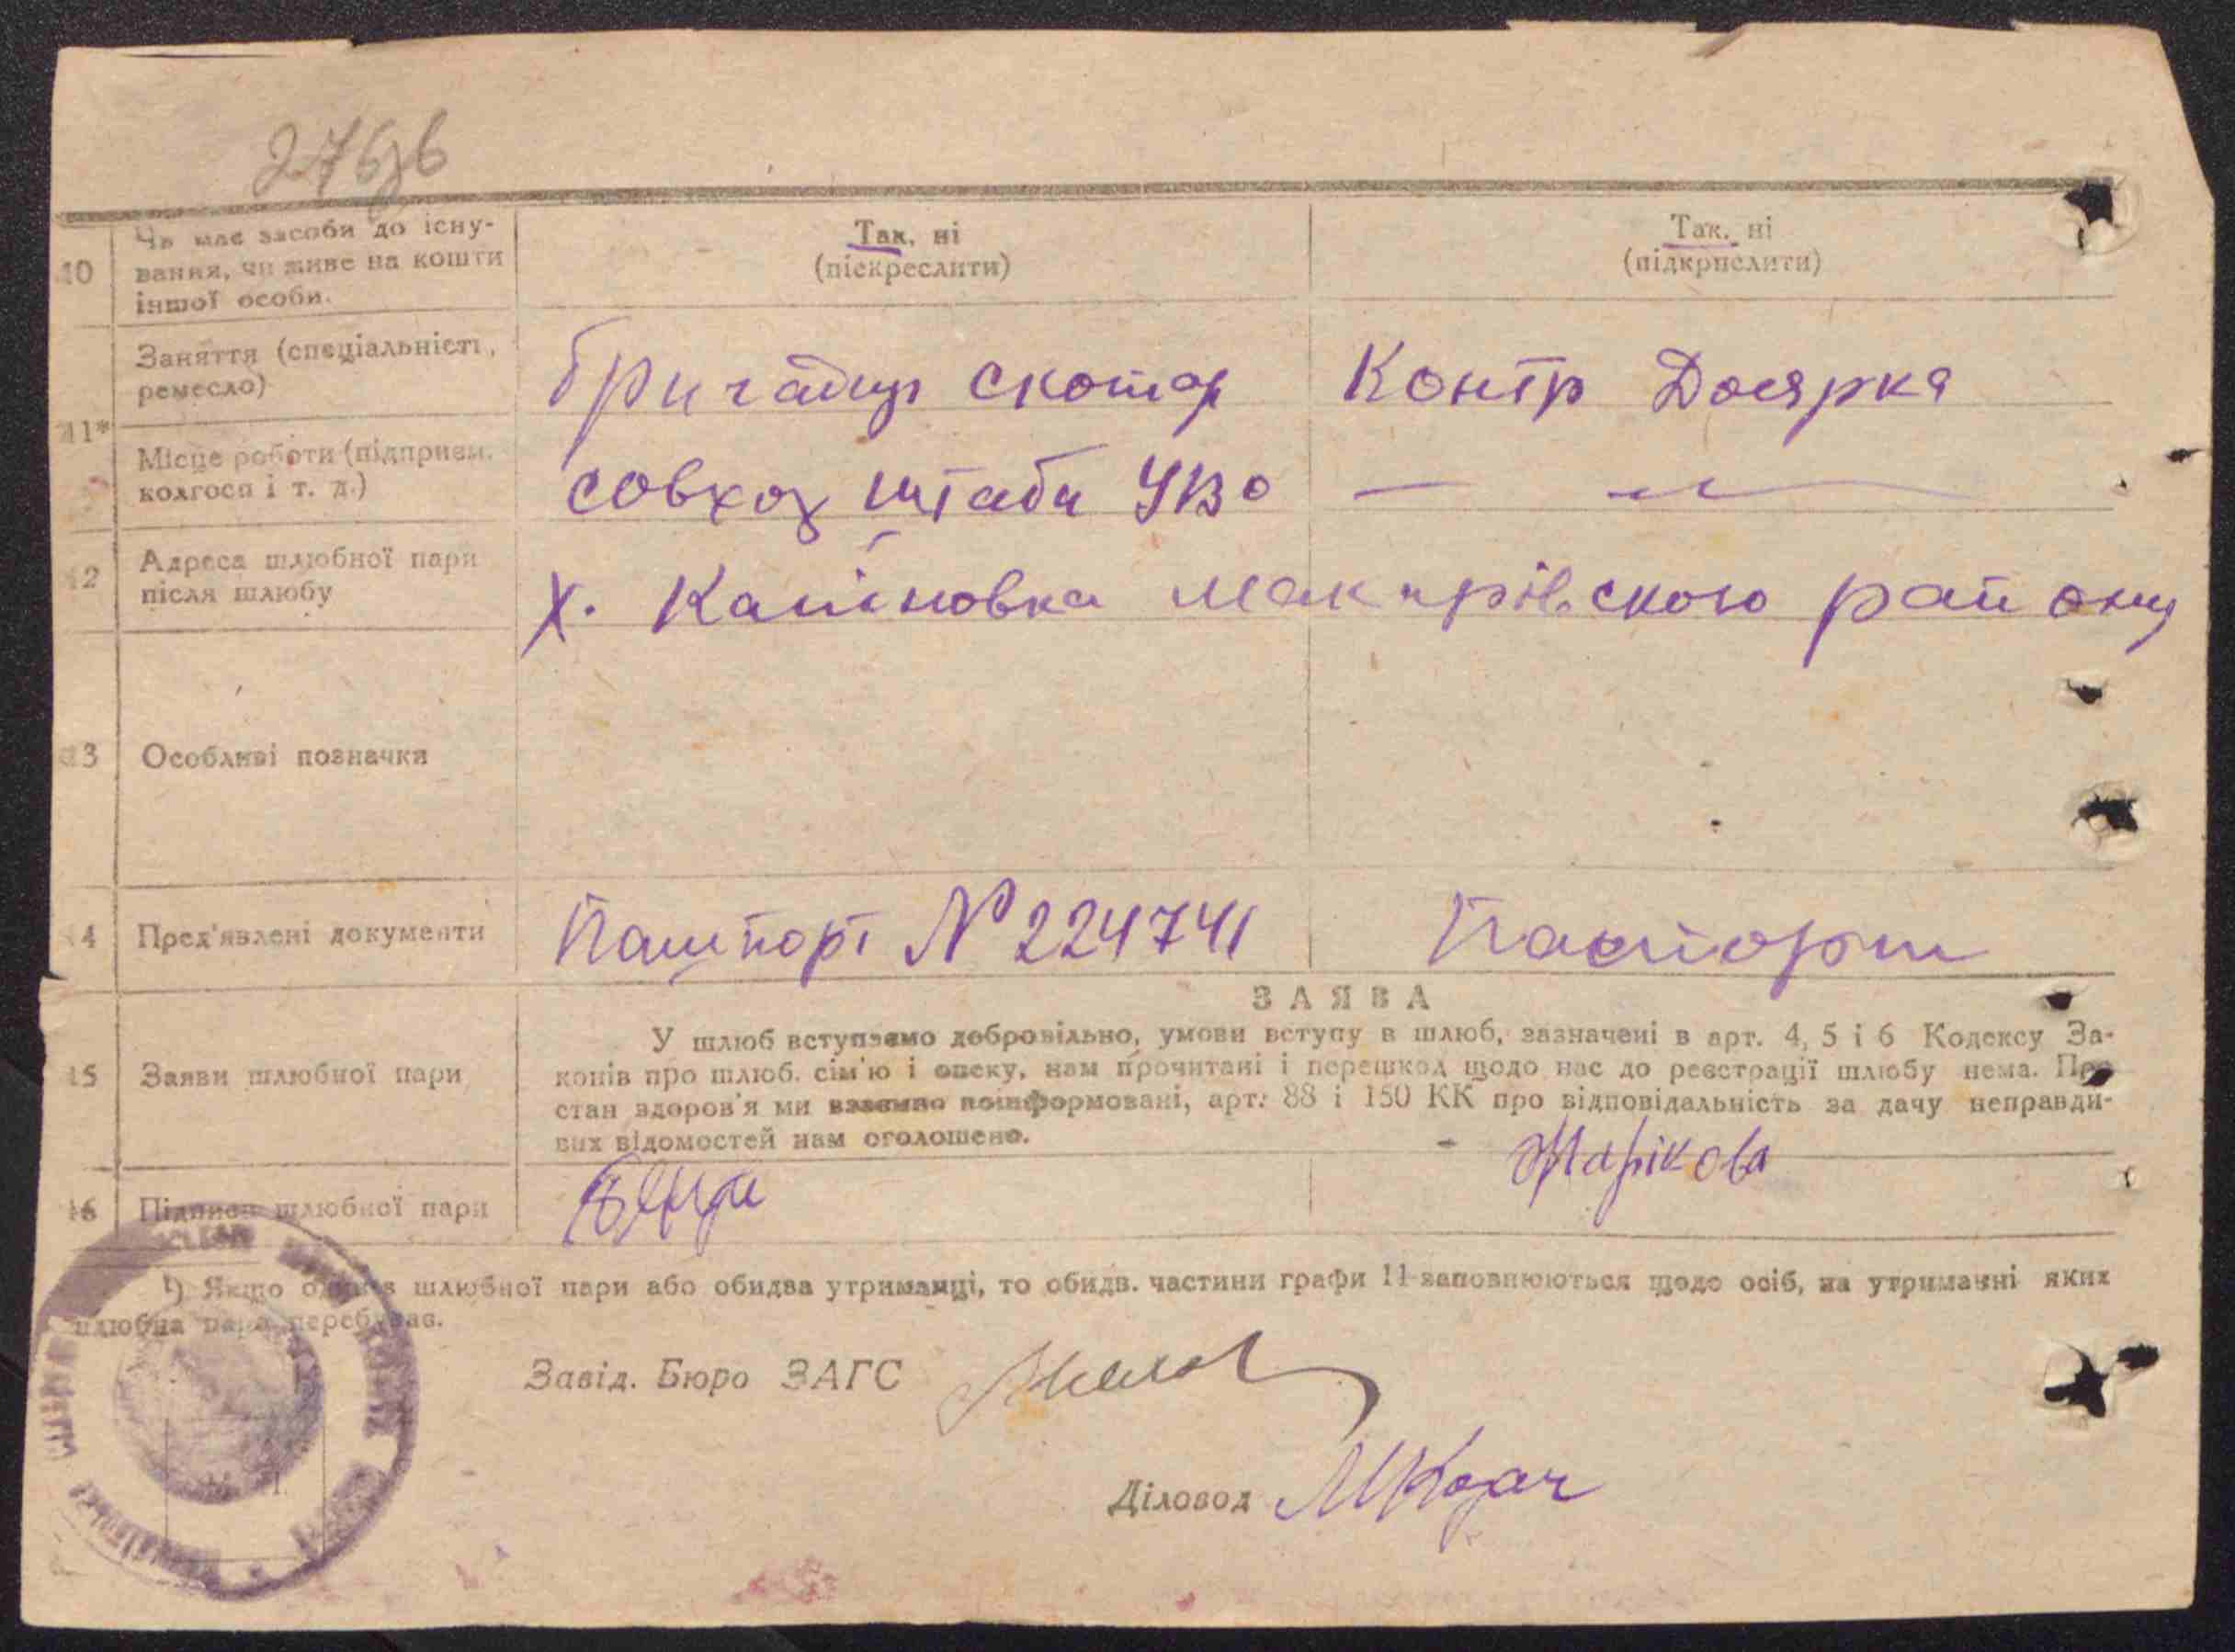 276
10
Чи має засоби до існу-
вання, чи живе на кошти
іншої особи.
Так, ні
(піекреслити)
Так. ні
(підкрислити)
11*
Заняття (спеціальність,
ремесло)
бригадир скотар
Контр Доярка
Місце роботи (підприєм.
колгосп і т. д.)
совхоз штаба УВО
— „ —
12
Адреса шлюбної пари
після шлюбу
х. Каліновка Макарівского району
13
Особливі позначки
14
Пред'явлені документи
Пашпорт № 224741
Паспорт
15
Заяви шлюбної пари
ЗАЯВА
У шлюб вступаємо добровільно, умови вступу в шлюб, зазначені в арт. 4, 5 і 6 Кодексу За-
конів про шлюб. сім'ю і опеку, нам прочитані і перешкод щодо нас до реєстрації шлюбу нема. Про
стан здоров'я ми взаємно поінформовані, арт. 88 і 150 КК про відповідальність за дачу неправди-
вих відомостей нам оголошено.
16
Підписи шлюбної пари
Жарікова
*) Якщо один з шлюбної пари або обидва утриманці, то обидв. частини графи 11 заповнюються щодо осіб, на утриманні яких
шлюбна пара перебуває.
Завід. Бюро ЗАГС
Діловод